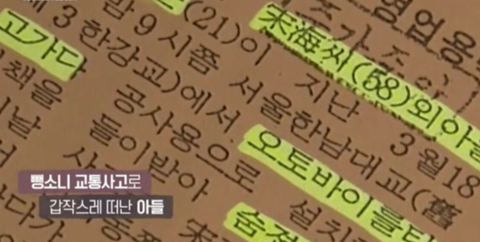 영업용
宋海씨(58)외아들
(21)이 지난 3월18
밤 9시쯤 서울한남대교(舊
3한강교)에서 오토바이를타
고가다 공사용으로 설치
책을 들이받아 숨
뺑소니 교통사고로
갑작스레 떠난 아들